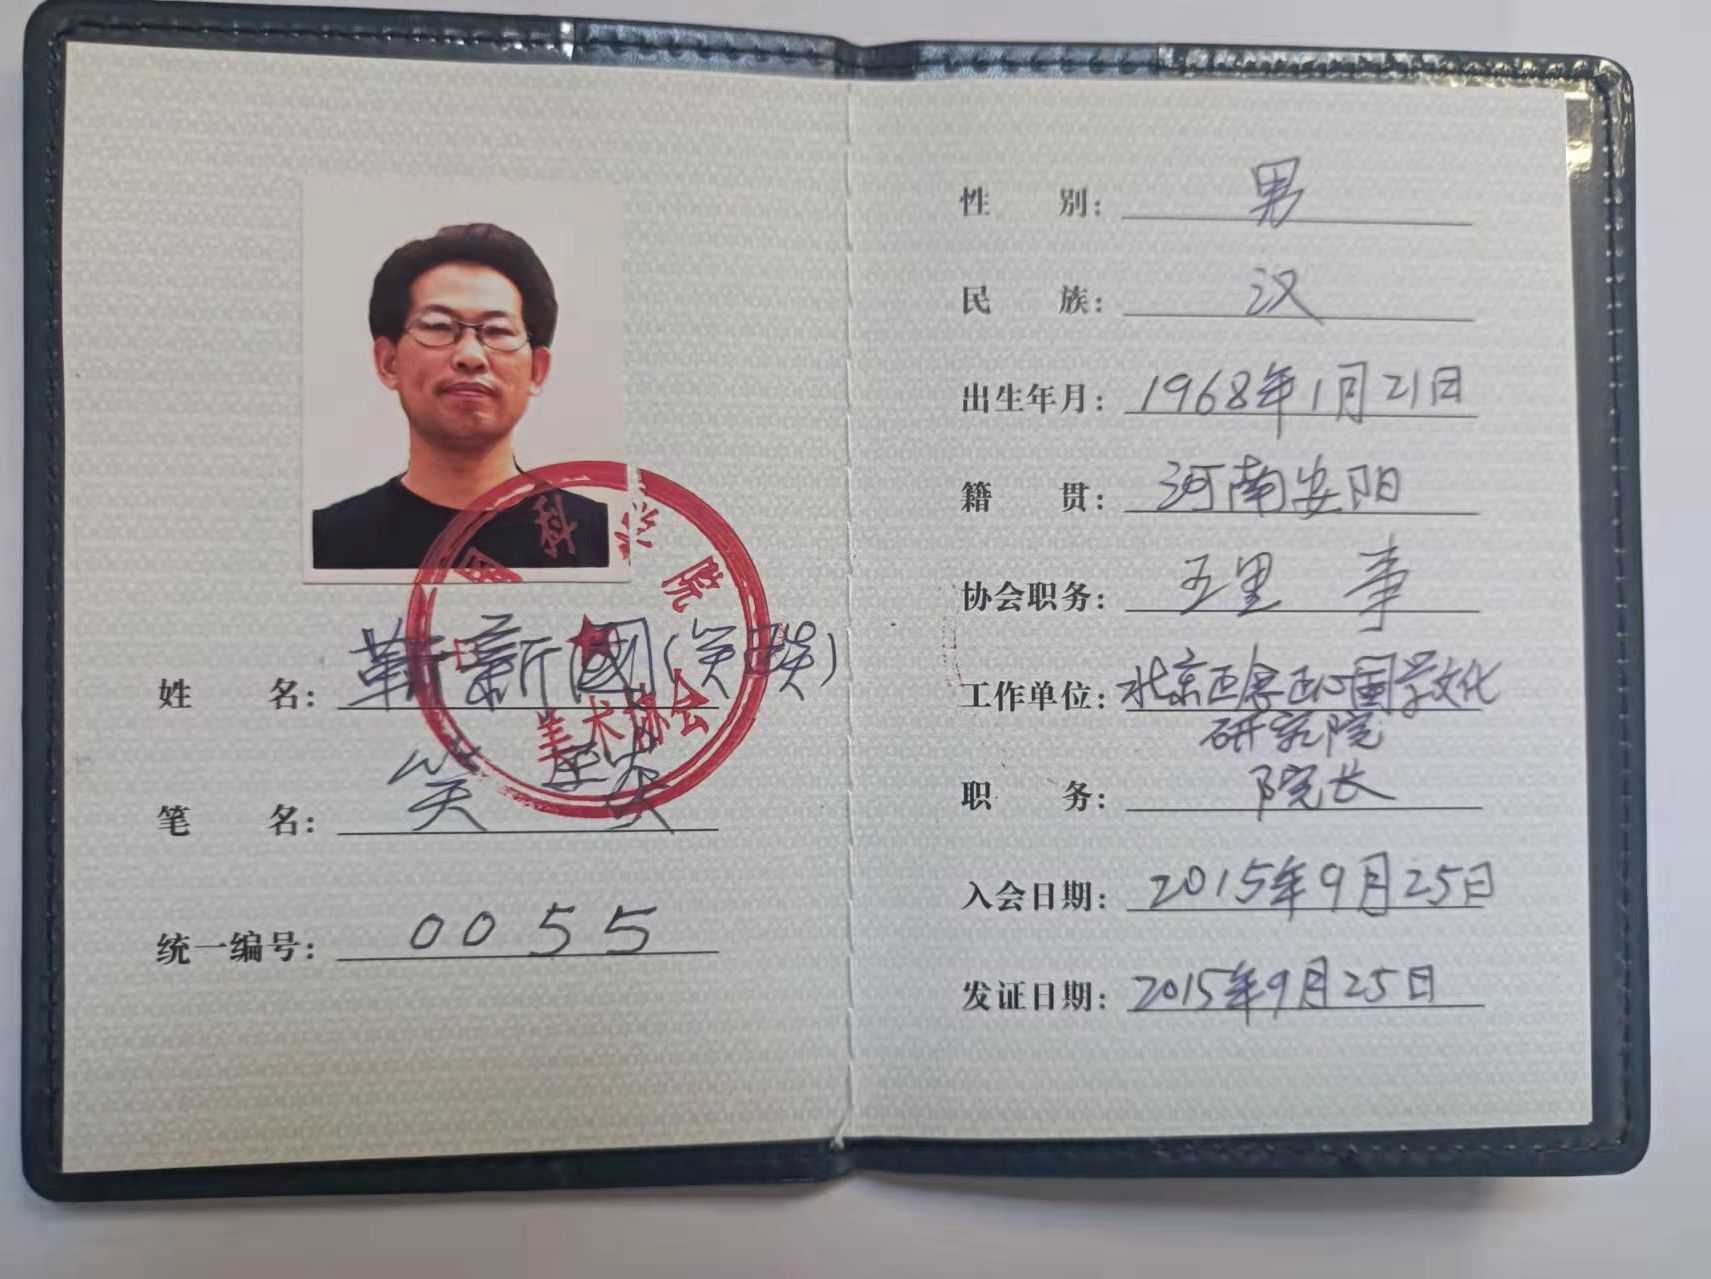 中国科学院
美术协会
姓 名：靳新國（笑瑛）
笔 名：笑 瑛
统一编号：0055
性 别：男
民 族：汉
出生年月：1968年1月21日
籍 贯：河南安阳
协会职务：理 事
工作单位：北京正念正心國学文化
研究院
职 务：院长
入会日期：2015年9月25日
发证日期：2015年9月25日